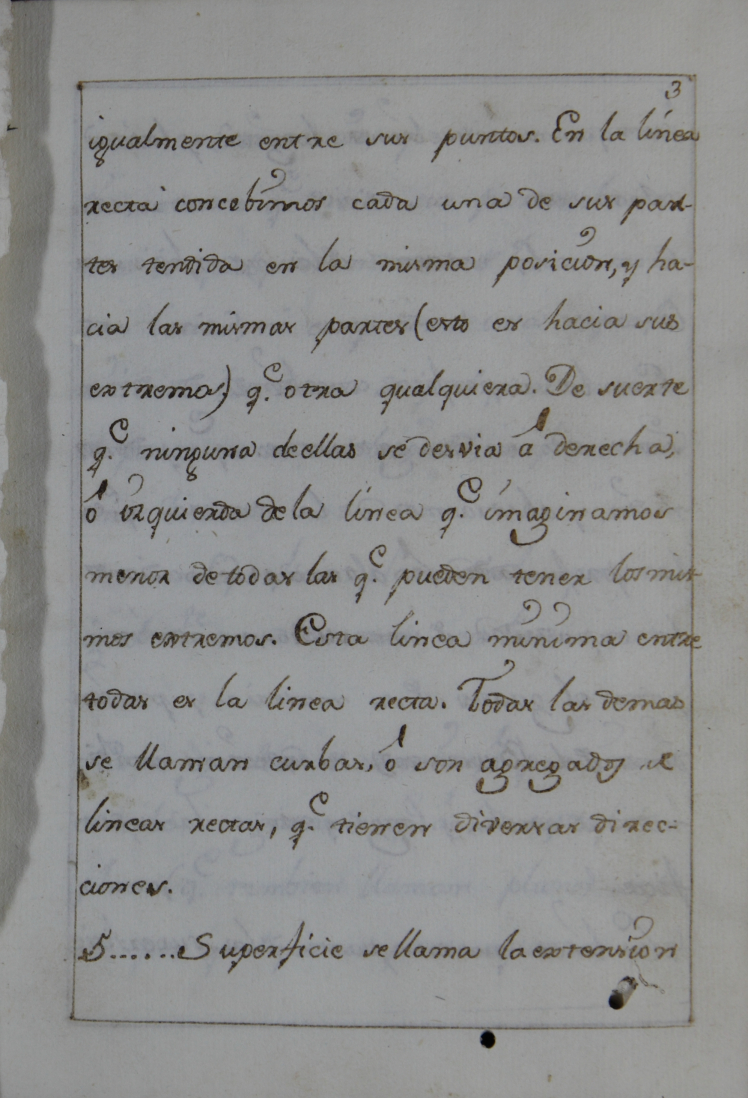 3
igualmente entre sus puntos. En la línea
recta concebimos cada una de sus par-
tes tendida en la misma posicion, y ha-
cia las mismas partes (esto es hacia sus
extremos) q.e otra qualquiera. De suerte
q.e ninguna de ellas se desvia á derecha,
ó izquierda de la línea q.e imaginamos
menor de todas las q.e pueden tener los mis-
mos extremos. Esta linea minima entre
todas es la linea recta. Todas las demas
se llaman curbas, ó son agregados de
lineas rectas, q.e tienen diversas direc-
ciones.
5......Superficie se llama la extension